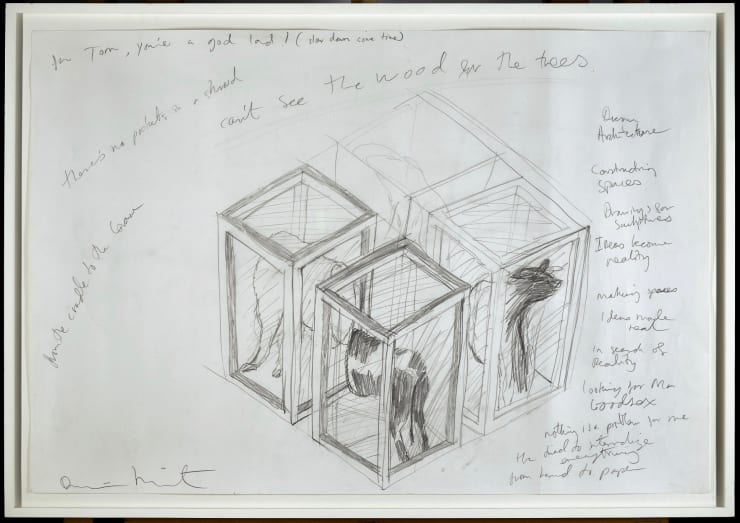 for Tom, you're a god lad! (slow down come time)
can't see the wood for the trees.
there's no pockets in a shroud
from the cradle to the Grave
Dreamy
Architecture
Constructing
Spaces
Drawings for
Sculptures
Ideas become
reality
making spaces
Ideas made
real
in search of
Reality
looking for Mr
Goodsex
nothing is a problem for me
the died to internalize
everything
from hand to paper